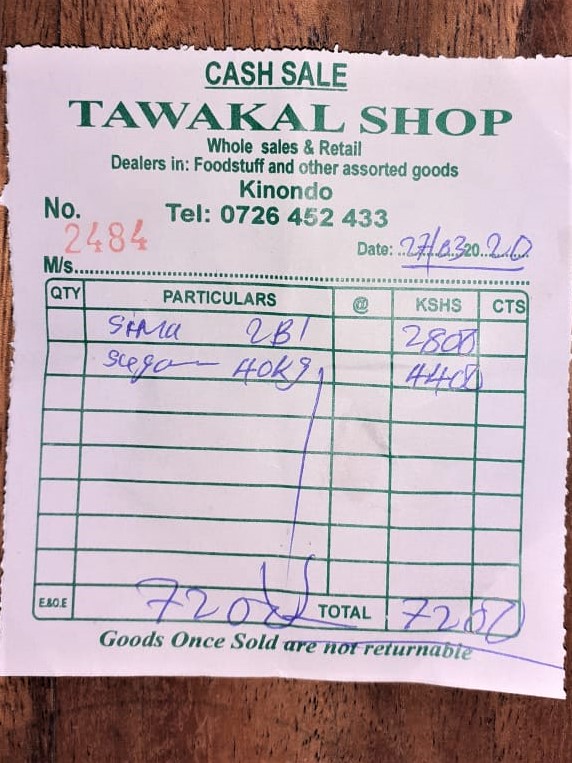 CASH SALE
TAWAKAL SHOP
Whole sales & Retail
Dealers in: Foodstuff and other assorted goods
Kinondo
No. 2484 Tel: 0726 452 433
Date: 27/03 20 20
M/s.
QTY PARTICULARS @ KSHS CTS
SIMA 2BI 2800
40Kg 4400
E&O.E 7200 TOTAL 7200
Goods Once Sold are not returnable